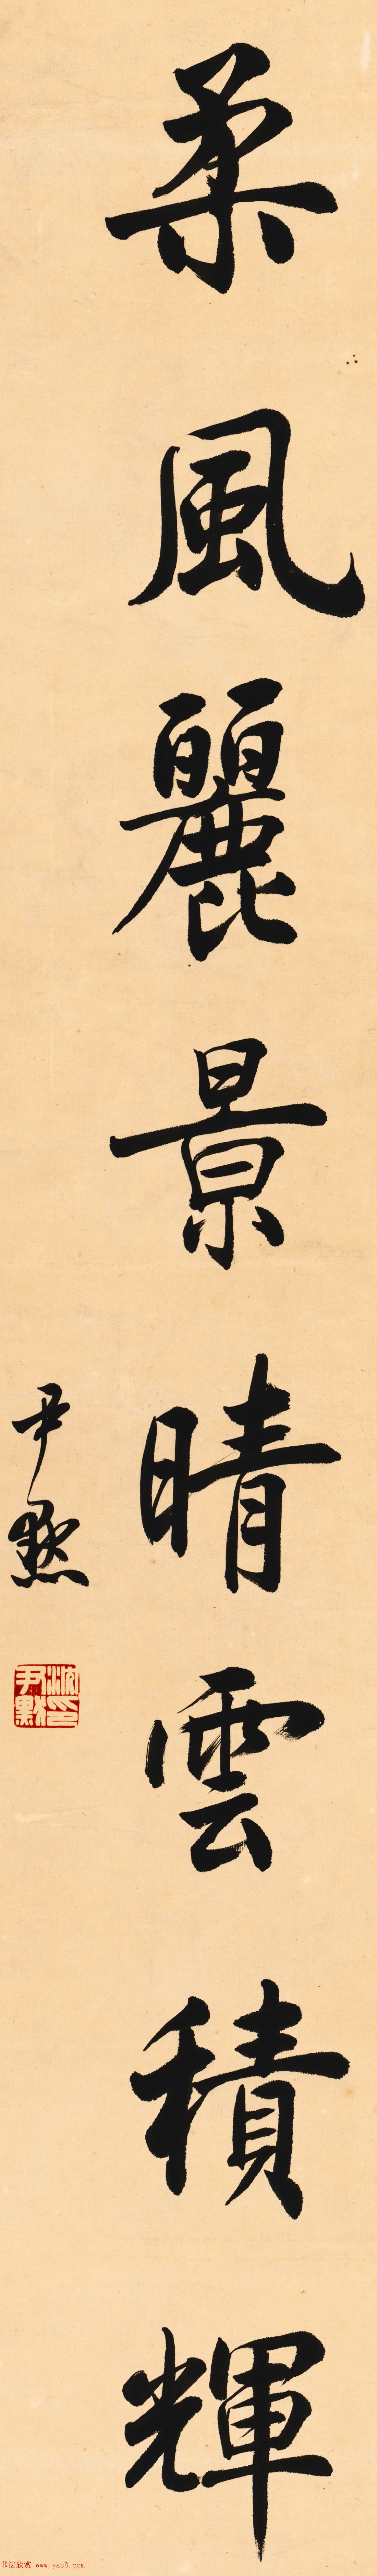 柔風麗景晴雲積輝
尹默
沈尹默印
书法欣赏 www.yac8.com